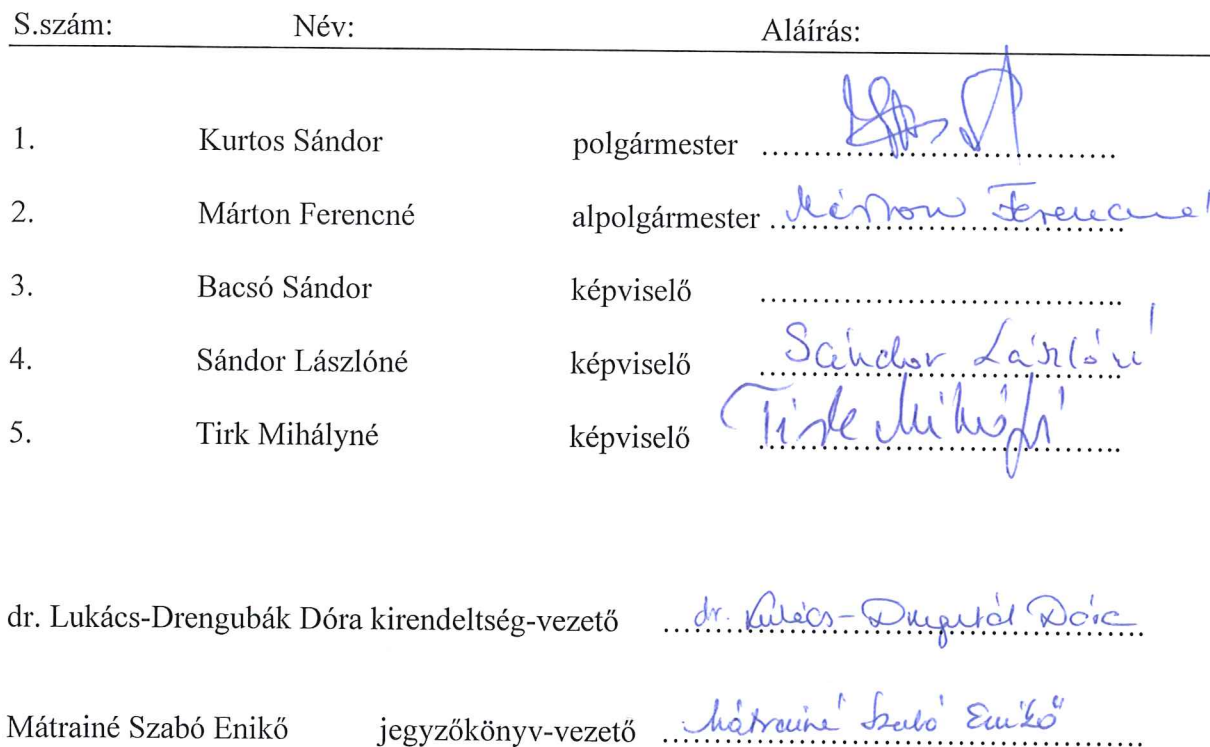 S.szám: Név: Aláírás:
1. Kurtos Sándor polgármester ……………………………
2. Márton Ferencné alpolgármester Márton Ferencné
3. Bacsó Sándor képviselő ……………………………
4. Sándor Lászlóné képviselő Sándor Lászlóné
5. Tirk Mihályné képviselő Tirk Mihályné
dr. Lukács-Drengubák Dóra kirendeltség-vezető dr. Lukács-Drengubák Dóra
Mátrainé Szabó Enikő jegyzőkönyv-vezető Mátrainé Szabó Enikő